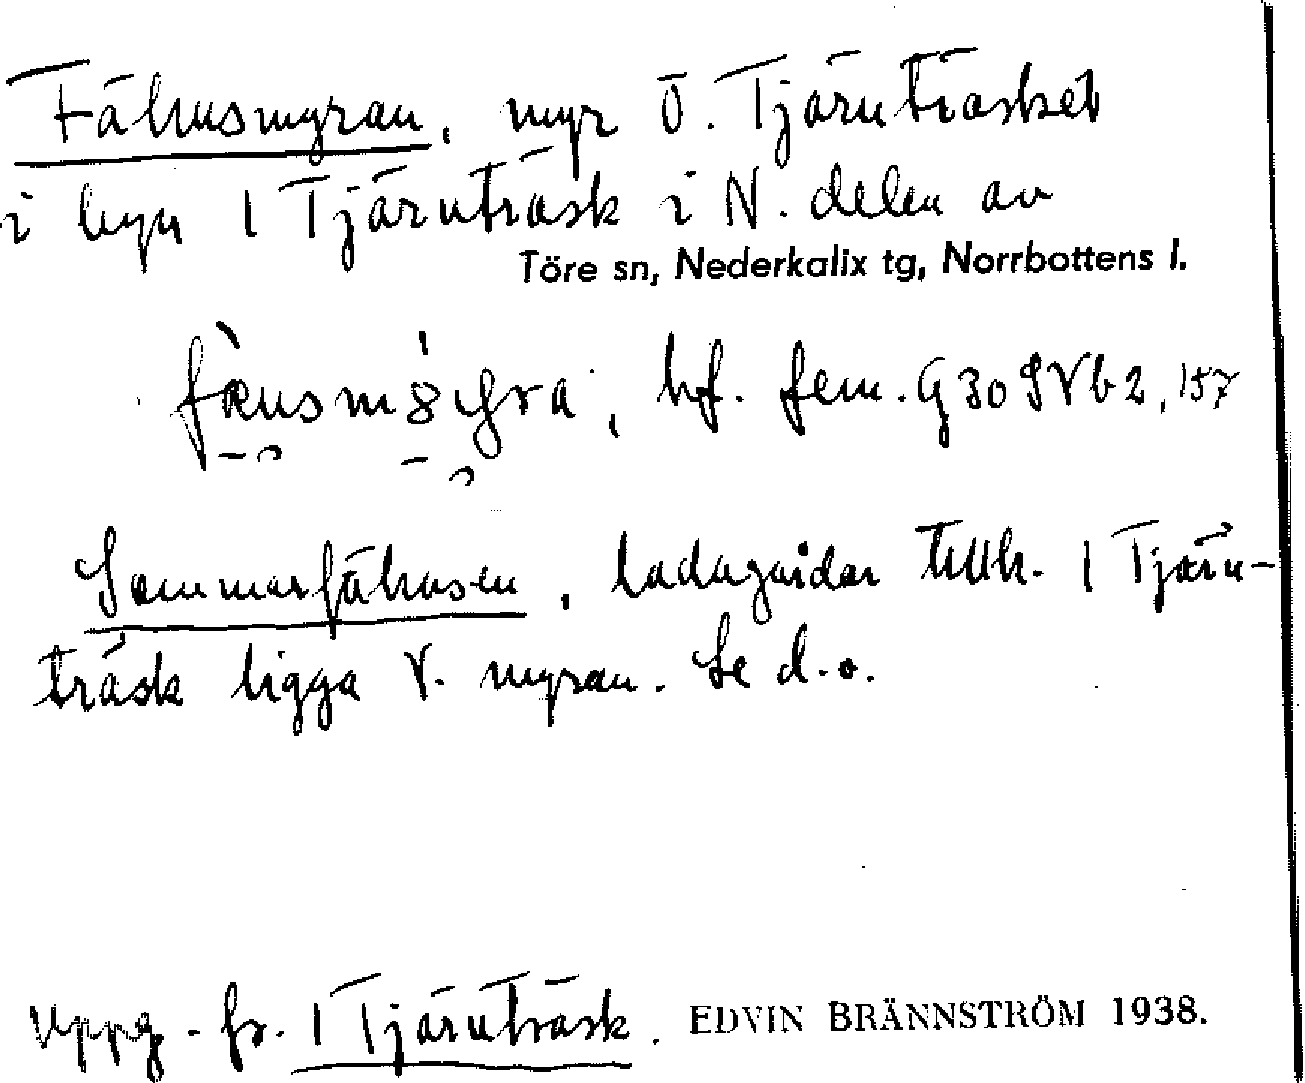 Fähusmyran, myr Ö. Tjärnträsket
i byn 1 Tjärnträsk i N. delen av
Töre sn, Nederkalix tg, Norrbottens l.
bf. fem. G30SVb2,157
Sommarfähusen, ladugårdar tillh. 1 Tjärn-
träsk ligga V. myran. Se d.o.
Uppg. fr. 1 Tjärnträsk. EDVIN BRÄNNSTRÖM 1938.